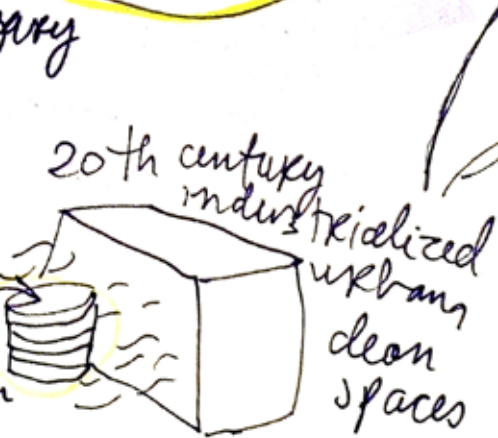 20th century
industrialized
urban
clean
spaces